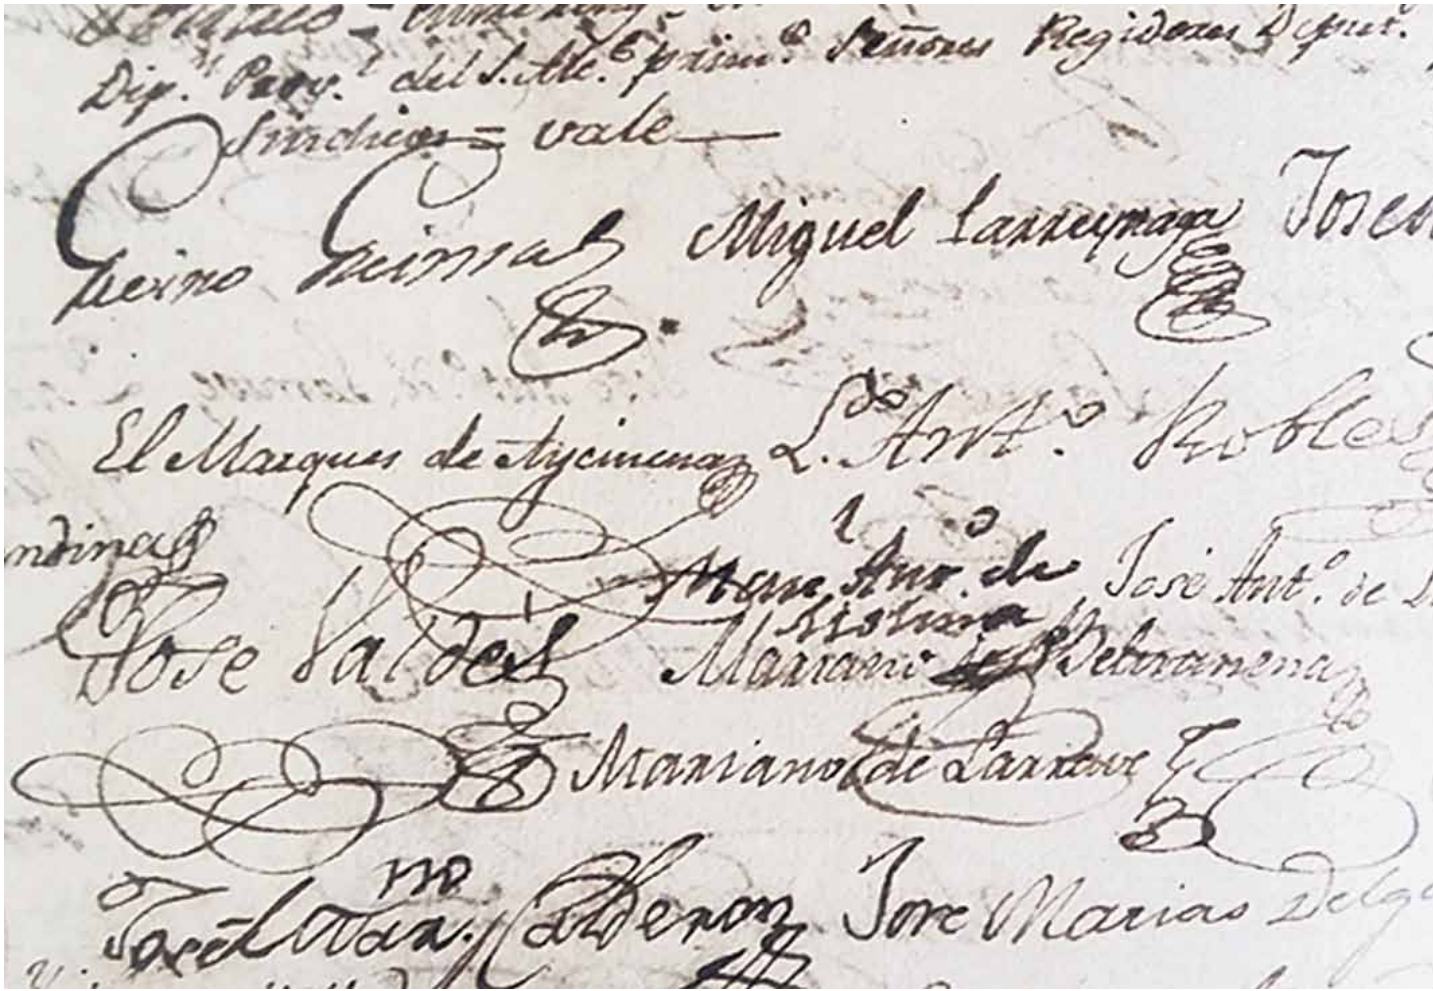 Dip.n Prov.l del S. Alc.e prim.o Señores Regidores Diput.
Sindicos = vale
Gavino Gainza Miguel Larreynaga José
El Marques de Aycinena L.do Ant.o Robles
ndinas
Man.l Ant.o de
Molina
José Ant.o de L
Jose Valdés Mariano de Beltranena
Mariano de Larrave
José Mar.no Calderon Jose Matias Delg